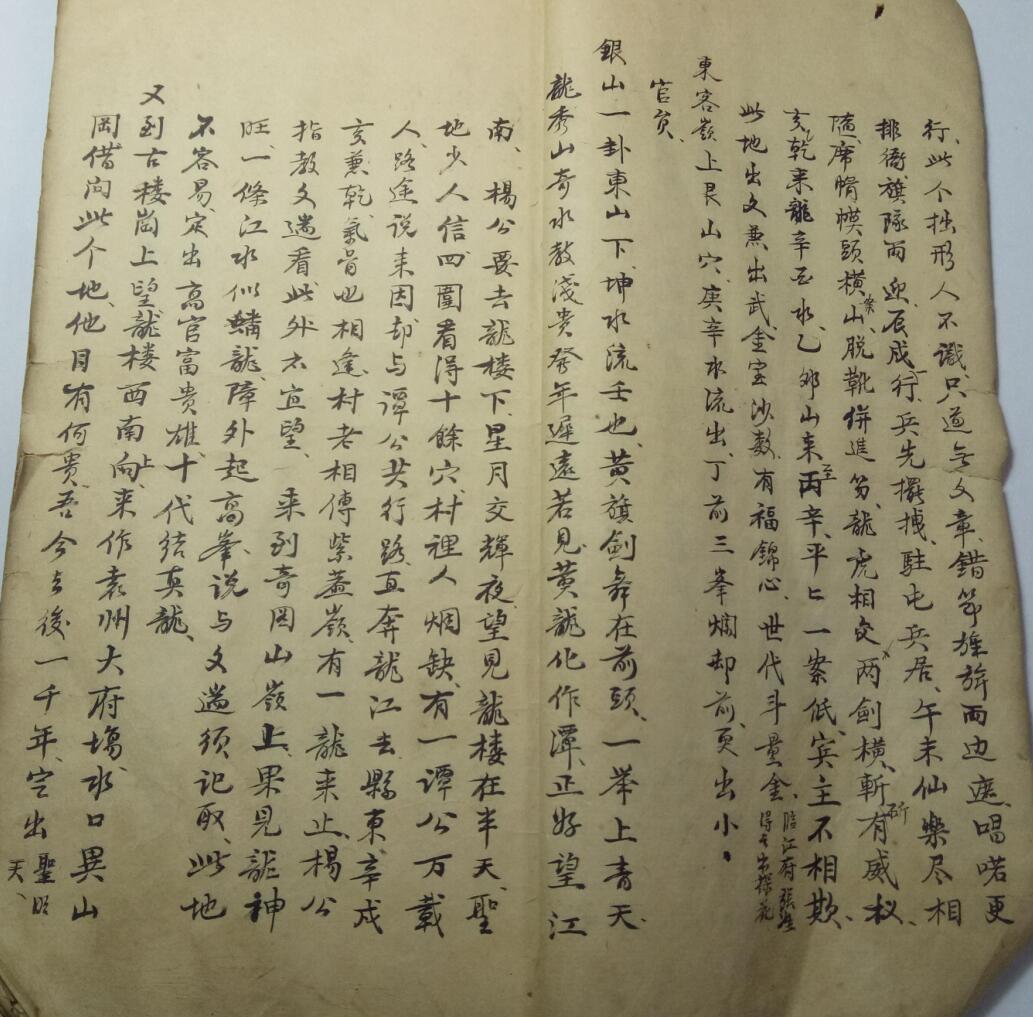 行、此个拙形人不識、只道無文章、錯節旌旂両边遮、唱喏更
排衙、旗隊両迎、辰戌一行、兵先擺搏、駐屯兵居、午未仙樂尽相
隨、席㡏幞頭橫案山、脫靴併進笏、龍虎相交両劍橫、斬斫有威权、
亥乾来龍辛至水、乙夘山来至丙辛、平匕一案低、宾主不相欺、
此地出文兼出武、金宝沙数、有福錦心、世代斗量金、臨江府張
得之出探花
東客嶺上艮山穴、庚辛水流出、丁前三峯爛却前、更出小、
官員、
銀山一卦東山下、坤水流壬也、黄旗劍舞在前頭、一举上青天、
龍秀山奇水教淺、貴發年遲遠、若見黄龍化作潭、正好望江
南、楊公要去龍楼下、星月交輝夜、望見龍楼在半天、聖
地少人信、四圍看得十餘穴、村裡人烟缺、有一譚公万載
人、路途说来因、却与譚公共行路、直奔龍江去、縣東辛戌
亥兼乾、氣骨也相逢、村老相傳紫蓋嶺、有一龍来止、楊公
指教文遄看、此外不宜望、来到奇岡山嶺上、果見龍神
旺、一條江水似蟠龍、障外起高峯、说与文遄须记取、此地
不容易、定出高官富贵雄、十代结真龍、
又到古楼崗上望、龍楼西南上向、来作袁州大府塲、水口異山
岡、借问此个地、他日有何贵、吾今去後一千年、定出聖明
天、